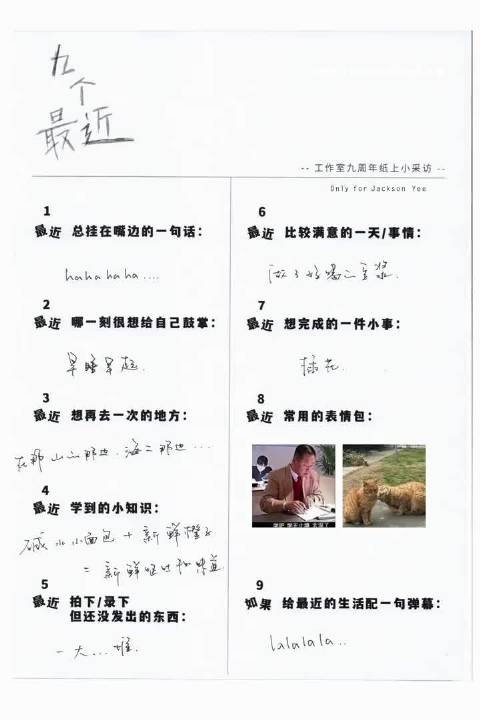 九
个
最近
-- 工作室九周年纸上小采访 --
Only for Jackson Yee
1
最近 总挂在嘴边的一句话：
hahahaha....
2
最近 哪一刻很想给自己鼓掌：
早睡早起.
3
最近 想再去一次的地方：
在那山的那边.海的那边...
4
最近 学到的小知识：
碱水小面包 + 新鲜橙子
= 新鲜
5
最近 拍下/录下
但还没发出的东西：
一大...堆.
6
最近 比较满意的一天/事情：
做了好喝的豆浆.
7
最近 想完成的一件小事：
插花.
8
最近 常用的表情包：
9
如果 给最近的生活配一句弹幕：
lalalala..